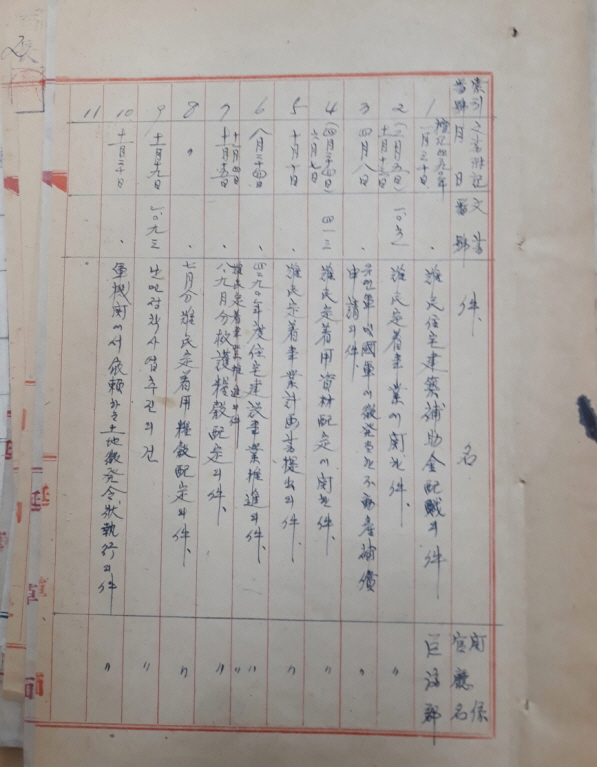 索引番號
文書番號
件名
關係官廳名
1
檀紀四二九〇年
一月三十日
難民住宅建築補助金配賦의件
巨濟郡
2
難民定着事業에關한件
〃
3
四月八日
유엔軍及國軍에徵発當한不動産補償
申請의件
〃
4
六月七日
四一三
難民定着用資材配定에關한件
〃
5
十月十日
難民定着事業計画書提出의件
〃
6
八月二十四日
四二九〇年度住宅建設事業推進의件
〃
十一月四日
難民定着事業推進의件
〃
7
十一月十五日
八、九月分救護糧穀配定의件
〃
8
〃
七月分難民定着用糧穀配定의件
〃
9
十一月十九日
一〇九三
난민정착사업추진의건
〃
10
十一月二十日
軍機関에서依賴하는土地徵発令状執行의件
〃
11